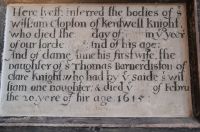 Here lyeth interred the bodies of Sr
william Clopton of kentwell knight
who died the day of in ye year
of our lorde and of his age:
And of dame Anne his first wife, the
daughter of Sr Thomas Barnerdiston of
clare knight, who had by ye saide Sr will
iam one daughter, & died ye of febru
the 20. yere of hir age 1615